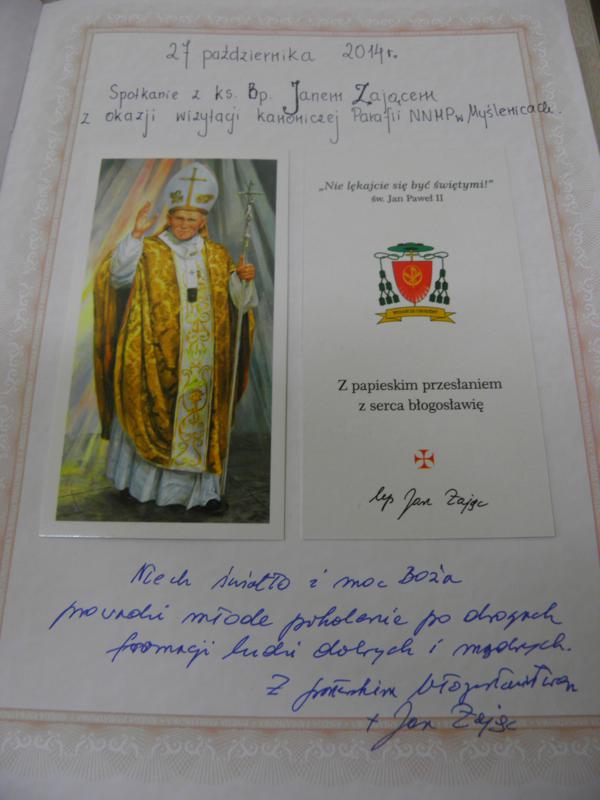 27 października 2014r.
Spotkanie z ks. Bp. Janem Zającem
z okazji wizytacji kanoniczej Parafii NNMP w Myślenicach.
„Nie lękajcie się być świętymi!”
św. Jan Paweł II
Z papieskim przesłaniem
z serca błogosławię
bp Jan Zając
Niech światło i moc Boża
prowadzi młode pokolenie po drogach
formacji ludzi dobrych i mądrych.
Z pasterskim błogosławieństwem
+ Jan Zając